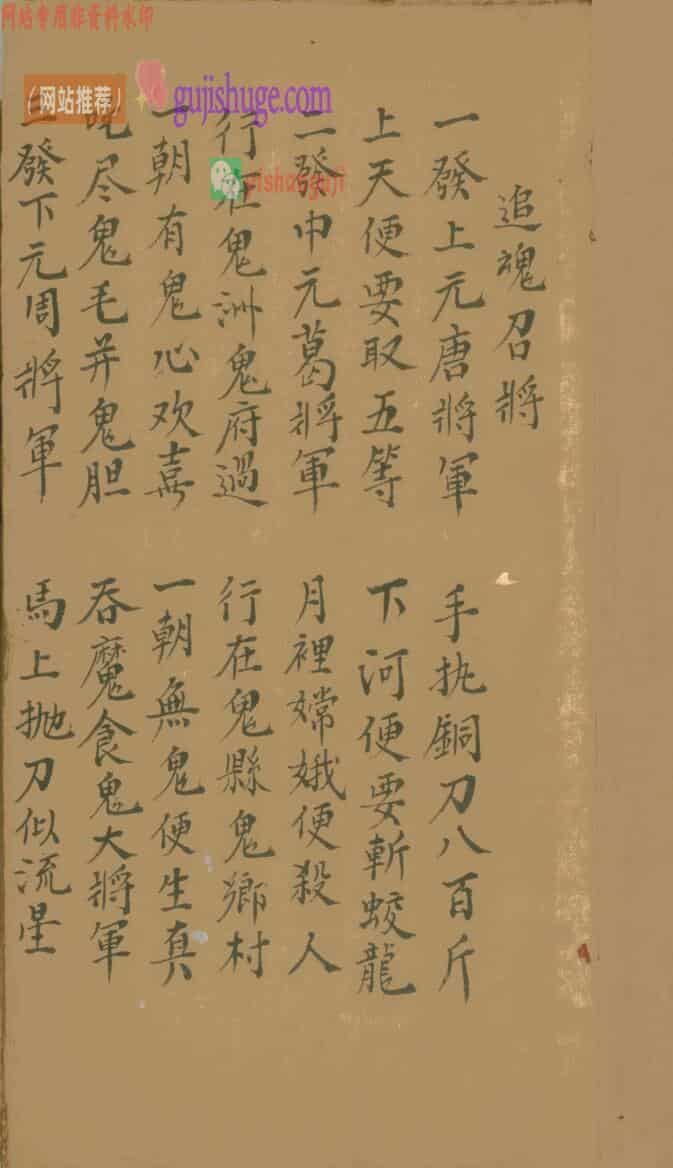 网站专用非资料水印
（网站推荐）
gujishuge.com
追魂召將
一發上元唐將軍 手执銅刀八百斤
上天便要取五等 下河便要斬蛟龍
二發中元葛將軍 月裡嫦娥便殺人
行在鬼洲鬼府過 行在鬼縣鬼鄉村
一朝有鬼心欢喜 一朝無鬼便生真
吃尽鬼毛并鬼胆 吞魔食鬼大將軍
三發下元周將軍 馬上抛刀似流星